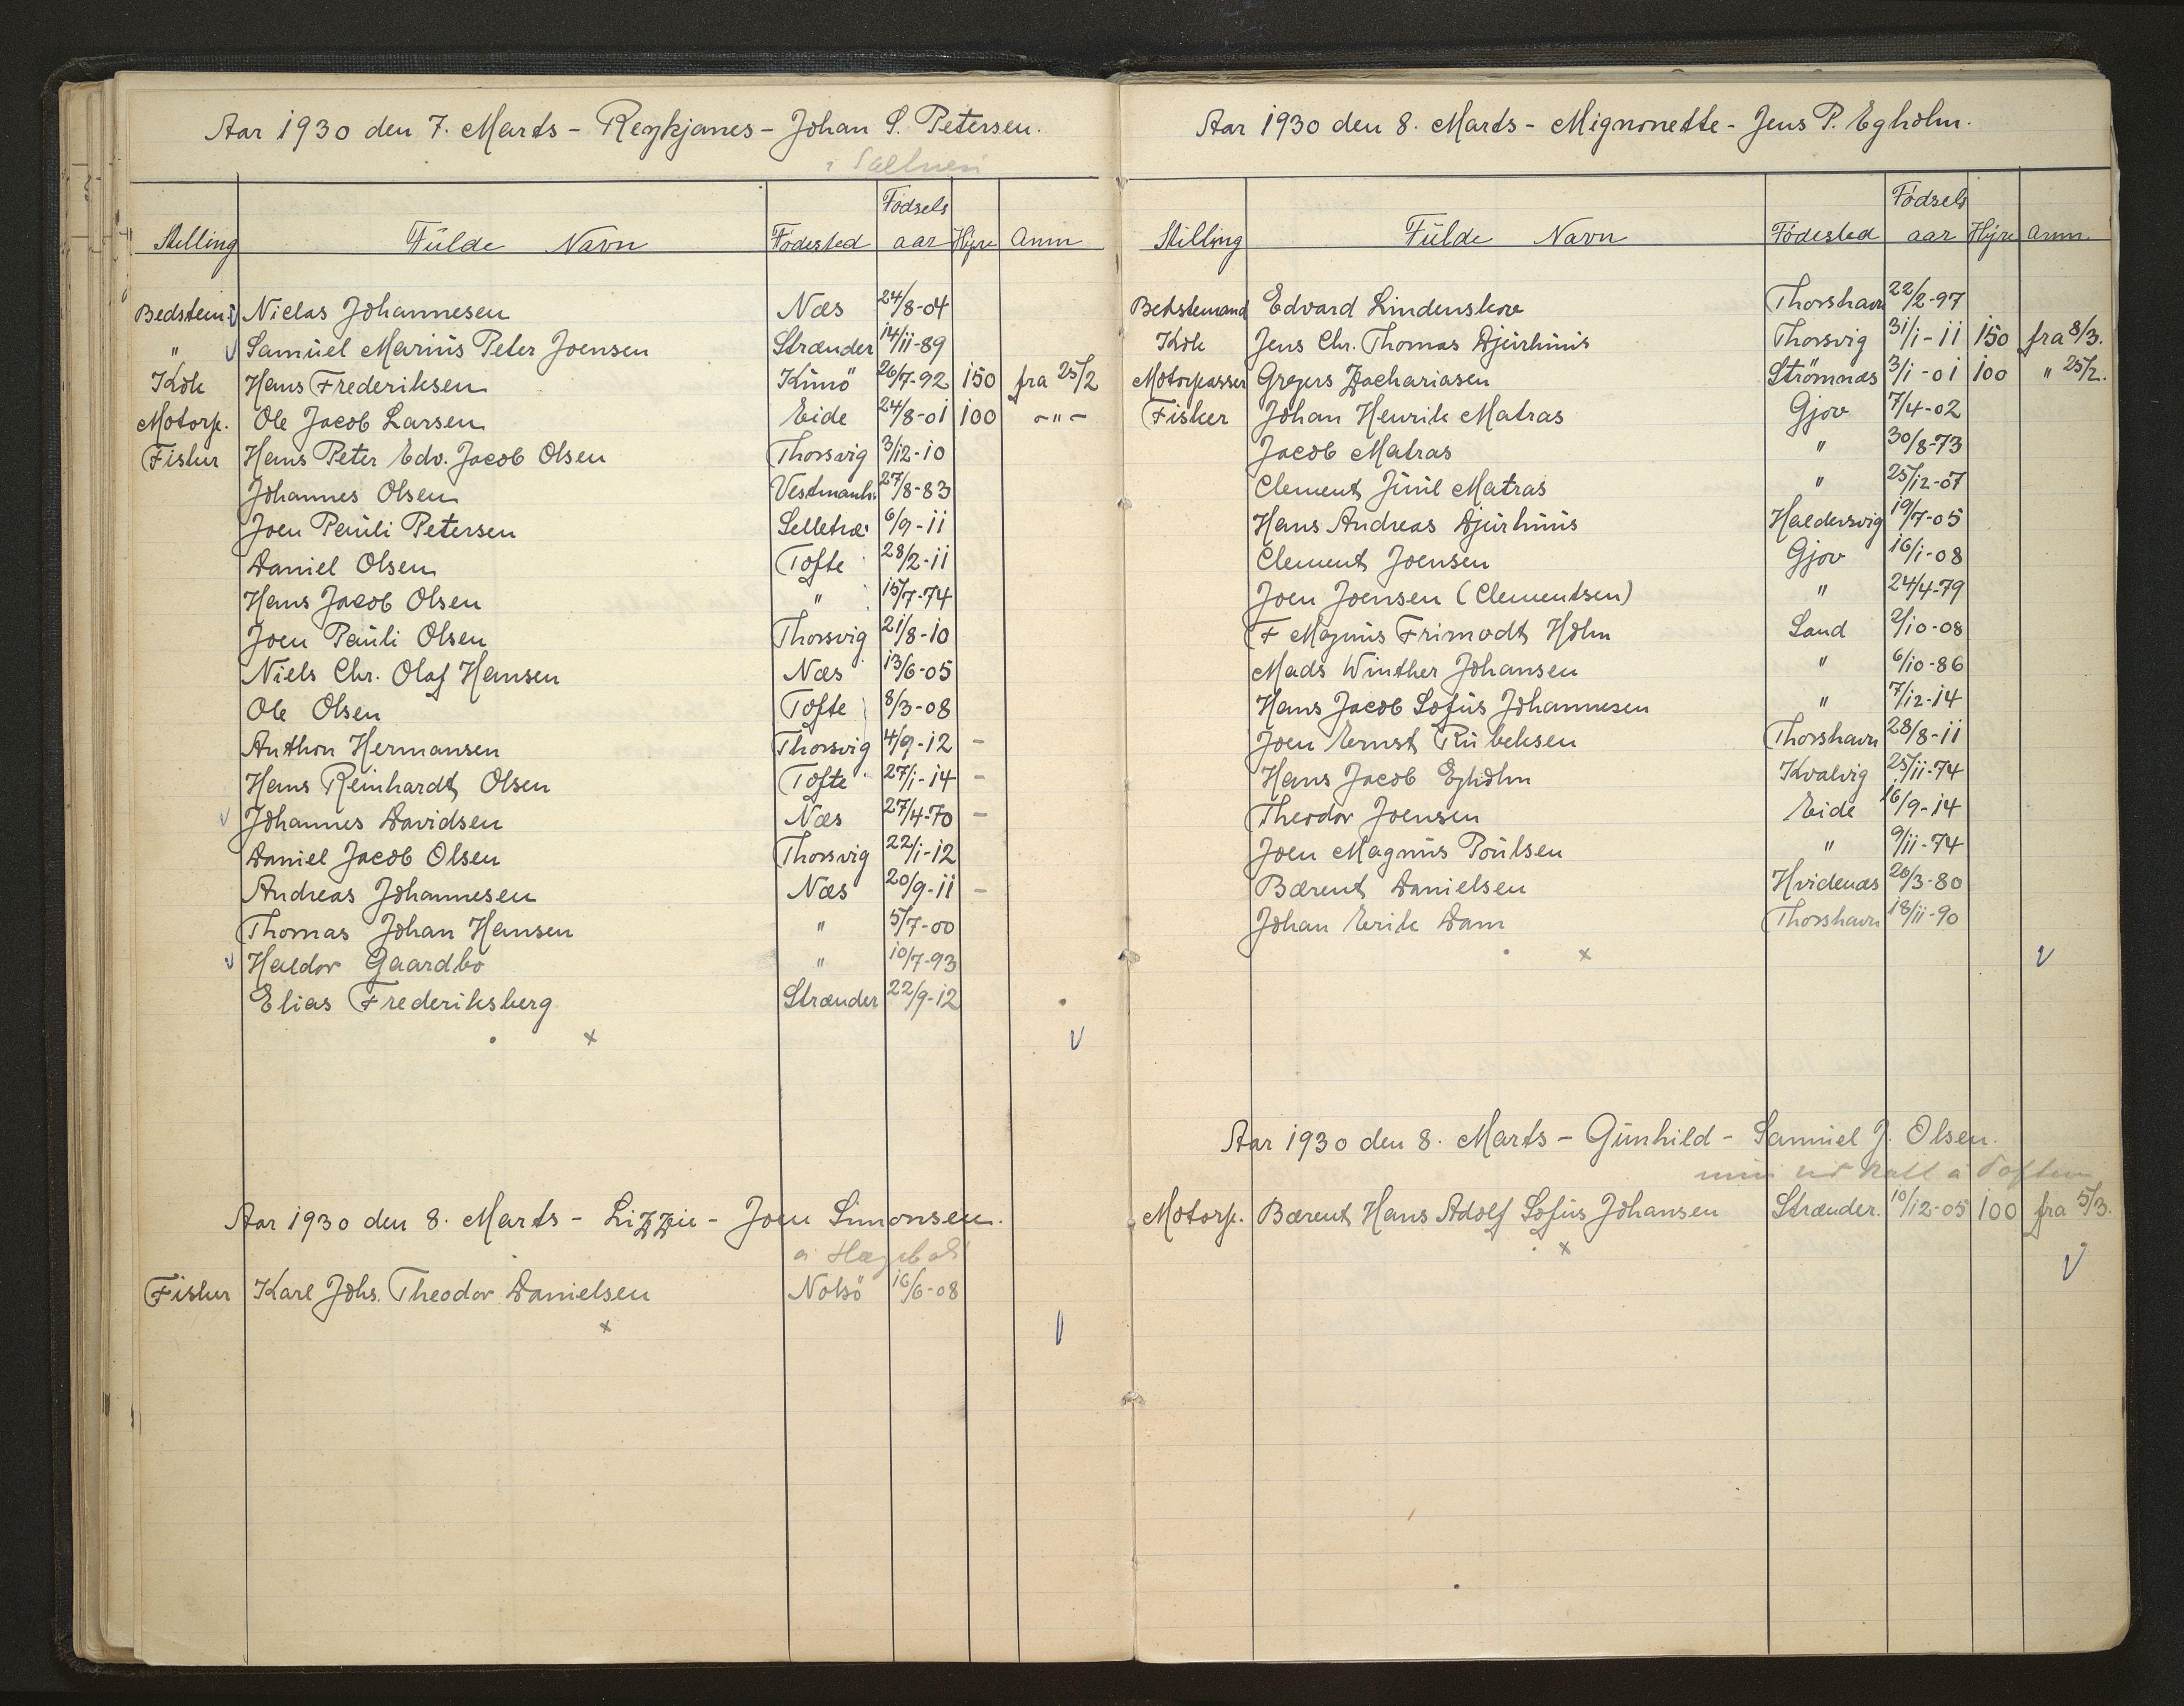 Aar 1930 den 7. Marts - Reykjanes - Johan S. Petersen.
Stilling Fulde Navn Fødested Fødsels aar Hyre Anm
Bedstem: Niclas Johannesen Næs 24/8-04
" Samuel Marius Peter Joensen Strænder 14/11-89
Kok Hans Frederiksen Kunö 26/7-92 150 fra 25/2
Motorp. Ole Jacob Larsen Eide 24/8-01 100 -"-
Fisker Hans Peter Edv. Jacob Olsen Thorsvig 3/12-10
Johannes Olsen Vestmanh. 27/8-83
Joen Pauli Petersen Selletræ: 6/9-11
Daniel Olsen Tofte 28/2-11
Hans Jacob Olsen " 15/7-74
Joen Pauli Olsen Thorsvig 21/8-10
Niels Chr. Olaf Hansen Næs 13/6-05
Ole Olsen Tofte 8/3-08
Anthon Hermansen Thorsvig 4/9-12 -
Hans Reinhardt Olsen Tofte 27/1-14 -
Johannes Davidsen Næs 27/4-70 -
Daniel Jacob Olsen Thorsvig 22/1-12
Andreas Johannesen Næs 20/9-11 -
Thomas Johan Hansen " 5/7-00
Haldor Gaardbo " 10/7-93
Elias Frederiksberg Strænder 22/9-12
Aar 1930 den 8. Marts - Lizzie - Joen Simonsen.
Fisker Karl Johs. Theodor Danielsen Nolsö 16/6-08
Aar 1930 den 8. Marts - Mignonette - Jens P. Egholm.
Stilling Fulde Navn Fødested Fødsels aar Hyre Anm.
Bedstemand Edvard Lindenskov Thorshavn 22/2-97
Kok Jens Chr. Thomas Djurhuus Thorsvig 31/1-11 150 fra 8/3.
Motorpasser Gregers Zachariasen Strömnæs 3/1-01 100 " 25/2.
Fisker Johan Henrik Matras Gjov 7/4-02
Jacob Matras " 30/8-73
Clement Juul Matras " 25/12-07
Hans Andreas Djurhuus Haldersvig 19/7-05
Clement Joensen Gjov 16/1-08
Joen Joensen (Clementsen) " 24/4-79
F Magnus Frimodt Holm Sand 2/10-08
Mads Winther Johansen " 6/10-86
Hans Jacob Sofus Johannesen " 7/12-14
Joen Ernst Rubeksen Thorshavn 28/8-11
Hans Jacob Egholm Kvalvig 25/11-74
Theodor Joensen Eide 16/9-14
Joen Magnus Poulsen " 9/11-74
Bærent Danielsen Hvidenæs 20/3-80
Johan Erik Dam Thorshavn 18/11-90
Aar 1930 den 8. Marts - Gunhild - Samuel J. Olsen.
Motorp. Bærent Hans Adolf Sofus Johansen Strænder. 10/12-05 100 fra 5/3.